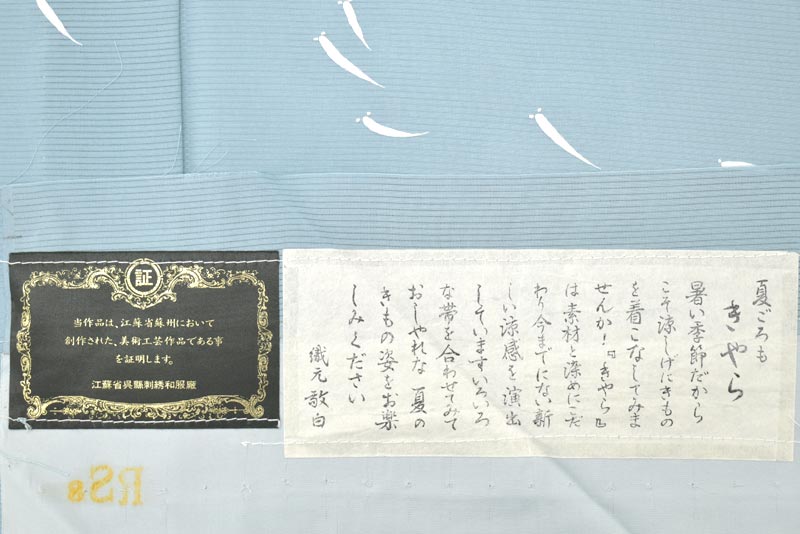 証
当作品は、江蘇省蘇州において
創作された、美術工芸作品である事
を証明します。
江蘇省呉縣刺綉和服廠
夏ごろも
きやら
暑い季節だから
こそ涼しげにきもの
を着こなしてみま
せんか！『きやら』
は素材と染めにこだ
わり今までにない新
しい涼感を演出
していますいろいろ
な帯を合わせてみて
おしゃれな 夏の
きもの姿をお楽
しみください
織元 敬白
RS8